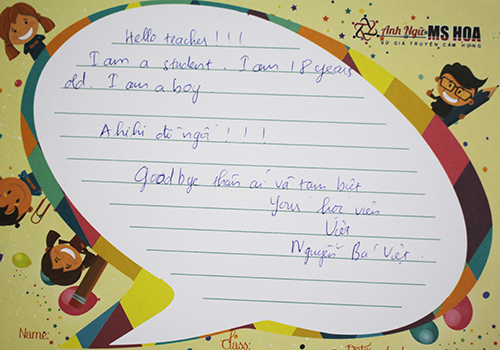 Anh Ngữ MS HOA
SỨ GIẢ TRUYỀN CẢM HỨNG
Hello teacher ! ! !
I am a student. I am 18 years
old. I am a boy.
Ahihi đồ ngố ! ! !
Goodbye thân ái và tạm biệt
Your học viên
Việt
Nguyễn Bá Việt.
Name:
Class:
Date: